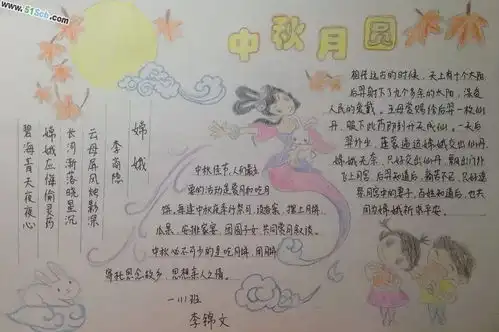 www.51Sob.com
中秋月圆
嫦娥
李商隐
云母屏风烛影深
长河渐落晓星沉
嫦娥应悔偷灵药
碧海青天夜夜心
相传远古的时候，天上有十个太阳
后羿射下了九个多余的太阳，深受
人民的爱戴。王母娘娘给后羿一枚仙
丹，服下此药即刻升天成仙。一天后
羿外出，蓬蒙逼迫嫦娥交出仙丹，
嫦娥无奈，只好交出仙丹，飘出门外
飞上月宫。后羿知道后，
月宫中的妻子。百姓知道后，也共
同为嫦娥祈求平安。
中秋佳节，人们最主
要的活动是赏月和吃月
饼。每逢中秋夜举行祭月，设香案，摆上月饼、
瓜果，安排家宴，团圆子女，共同赏月叙谈。
中秋必不可少的是吃月饼，用月饼
寄托思念故乡，思想亲人之情。
一(11)班
李锦文